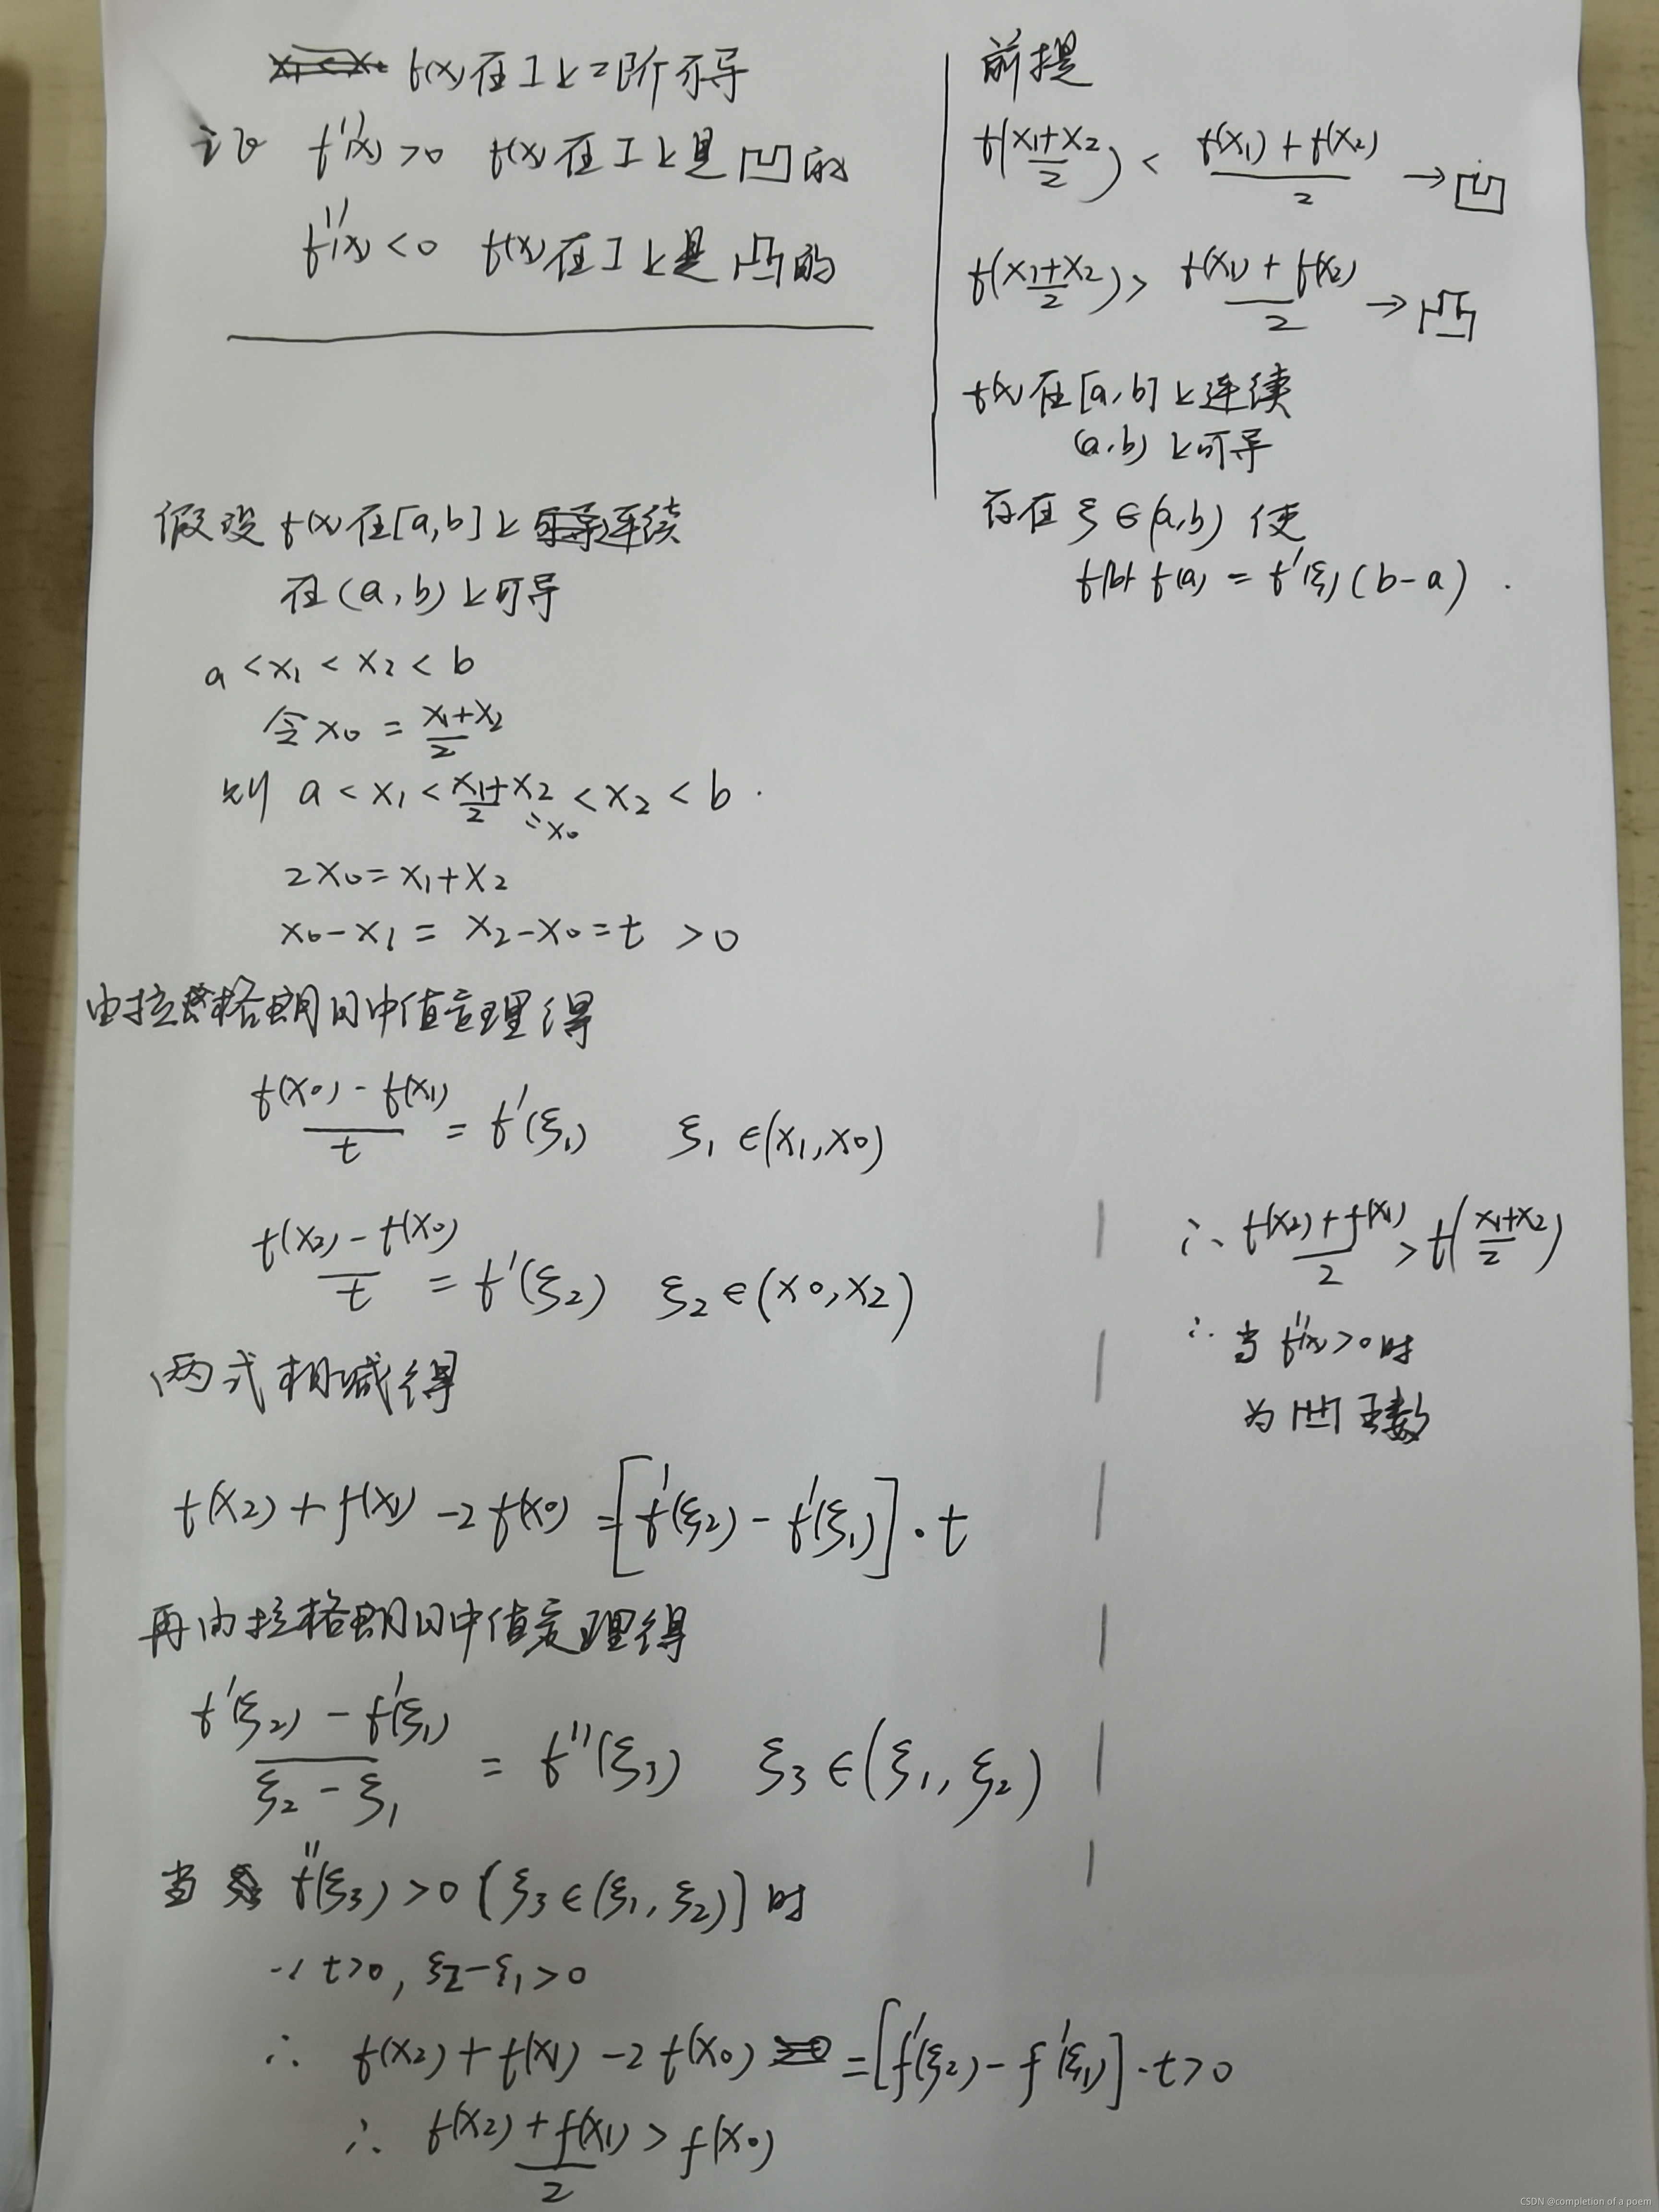 f(x)在I上二阶可导
证 f''(x)>0 f(x)在I上是凹的
f''(x)<0 f(x)在I上是凸的
前提
f((x1+x2)/2) < (f(x1)+f(x2))/2 → 凹
f((x1+x2)/2) > (f(x1)+f(x2))/2 → 凸
f(x)在[a,b]上连续
(a,b)上可导
存在ξ∈(a,b) 使
f(b)-f(a)=f'(ξ)(b-a).
假设 f(x)在[a,b]上连续
在(a,b)上可导
a<x1<x2<b
令x0=(x1+x2)/2
则 a<x1<(x1+x2)/2<x2<b.
=x0
2x0=x1+x2
x0-x1=x2-x0=t>0
由拉格朗日中值定理得
(f(x0)-f(x1))/t=f'(ξ1) ξ1∈(x1,x0)
(f(x2)-f(x0))/t=f'(ξ2) ξ2∈(x0,x2)
两式相减得
f(x2)+f(x1)-2f(x0)=[f'(ξ2)-f'(ξ1)]·t
再由拉格朗日中值定理得
(f'(ξ2)-f'(ξ1))/(ξ2-ξ1)=f''(ξ3) ξ3∈(ξ1,ξ2)
当 f''(ξ3)>0 [ξ3∈(ξ1,ξ2)]时
∵ t>0, ξ2-ξ1>0
∴ f(x2)+f(x1)-2f(x0)=[f'(ξ2)-f'(ξ1)]·t>0
∴ (f(x2)+f(x1))/2>f(x0)
∴ (f(x2)+f(x1))/2>f((x1+x2)/2)
∴ 当f''(x)>0时
为凹函数
CSDN @completion of a poem